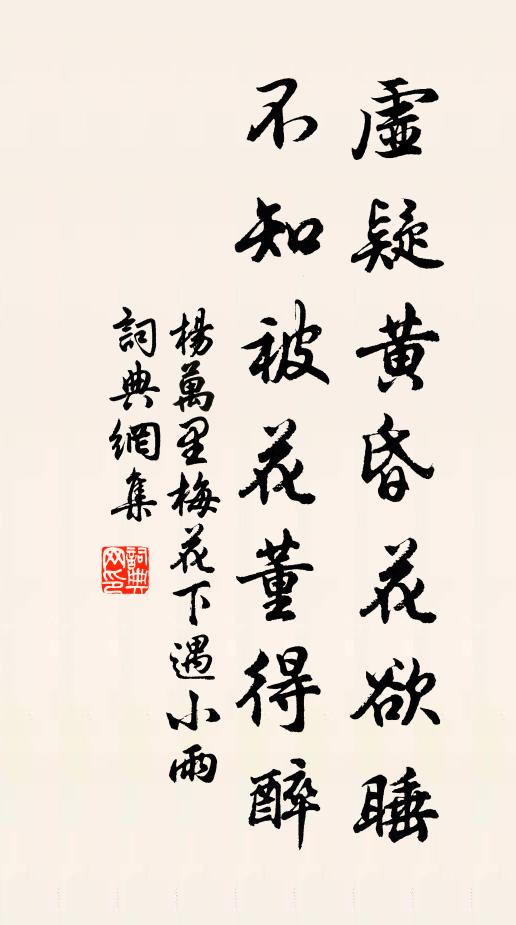 虛疑黃昏花欲睡
不知被花董得醉
楊萬里梅花下遇小雨
詞典網集
詞典
网印